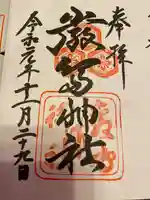 奉拝
巌島神社
令和元年十一月二十九日